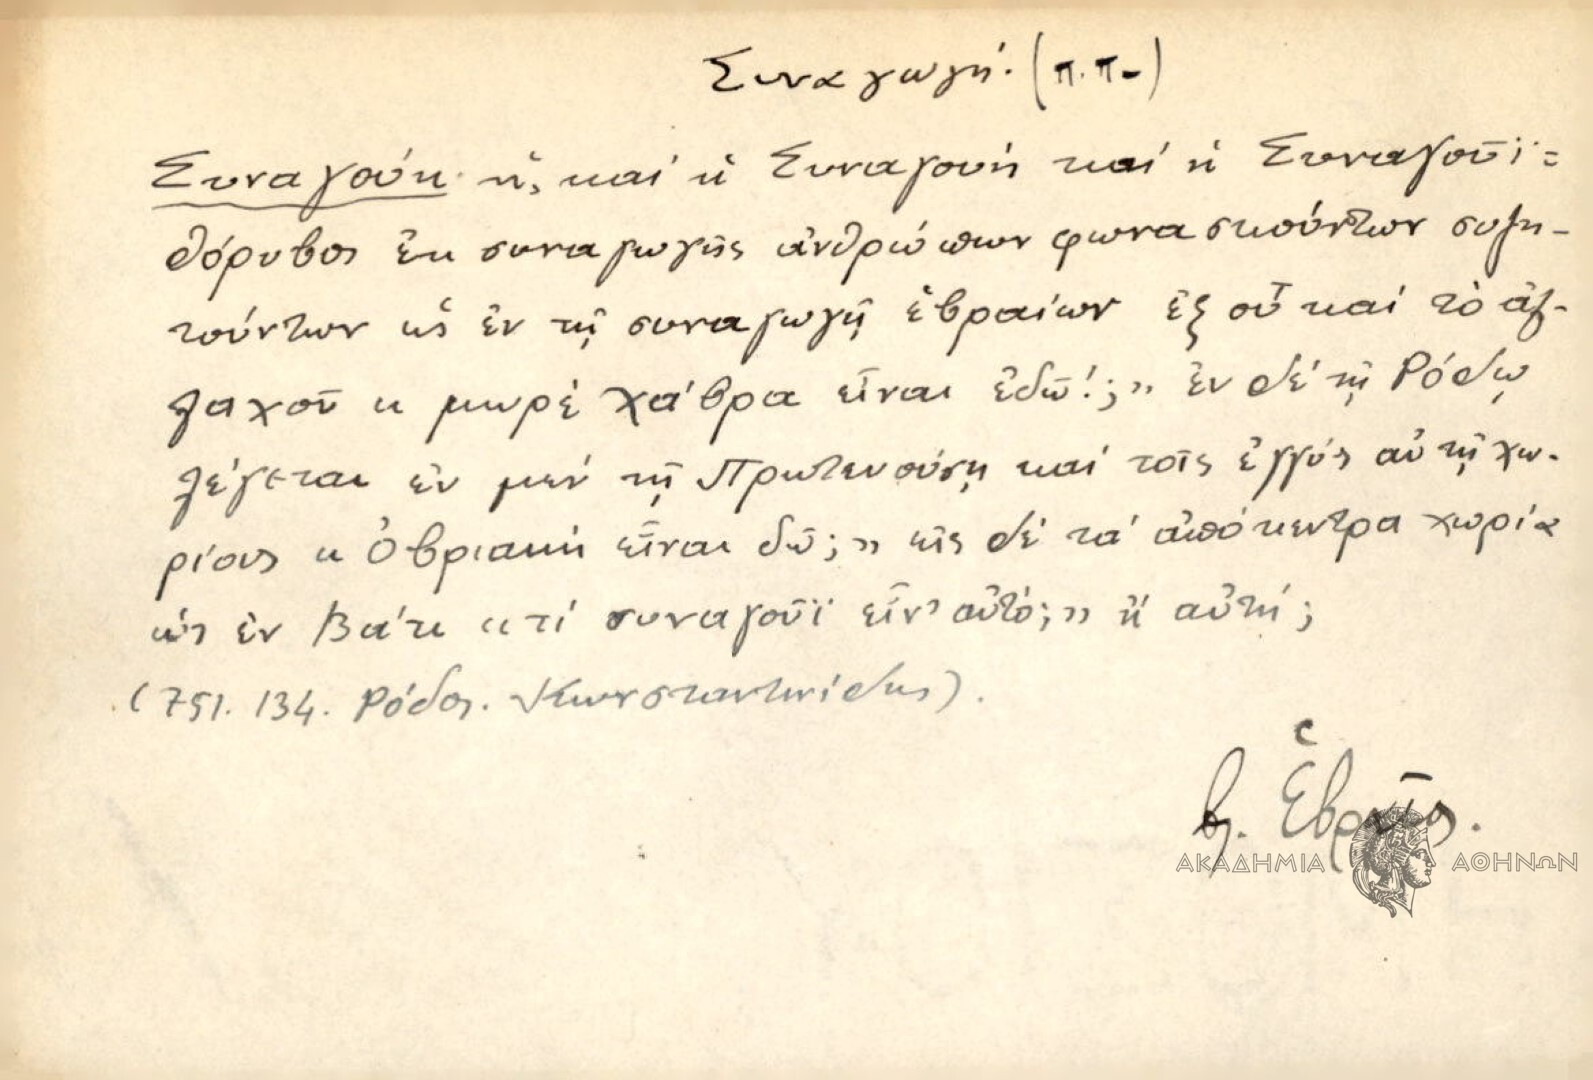 Συναγωγή. (π.π.)
Συναγούη ἡ, καί ἡ Συναγουή καί ἡ Συναγοῦϊ =
θόρυβος ἐκ συναγωγῆς ἀνθρώπων φωνασκούντων συζη-
τούντων ὡς ἐν τῇ συναγωγῇ ἑβραίων ἐξ οὗ καί τὸ ἀλ-
λαχοῦ « μωρέ χάβρα εἶναι ἐδῶ!;» ἐν δέ τῇ Ρόδῳ
λέγεται ἐν μέν τῇ Πρωτευούσῃ καί τοῖς ἐγγύς αὐτῇ χω-
ρίοις « Ὀβριακή εἶναι δῶ;» εἰς δέ τά ἀπόκεντρα χωρία
ὡς ἐν Βάτι «τί συναγοῦϊ εἶν' αὐτό;» ἤ αὐτή;
(751. 134. Ρόδος. Κωνσταντινίδης).
βλ. Ἑβραῖος.
ΑΚΑΔΗΜΙΑ ΑΘΗΝΩΝ